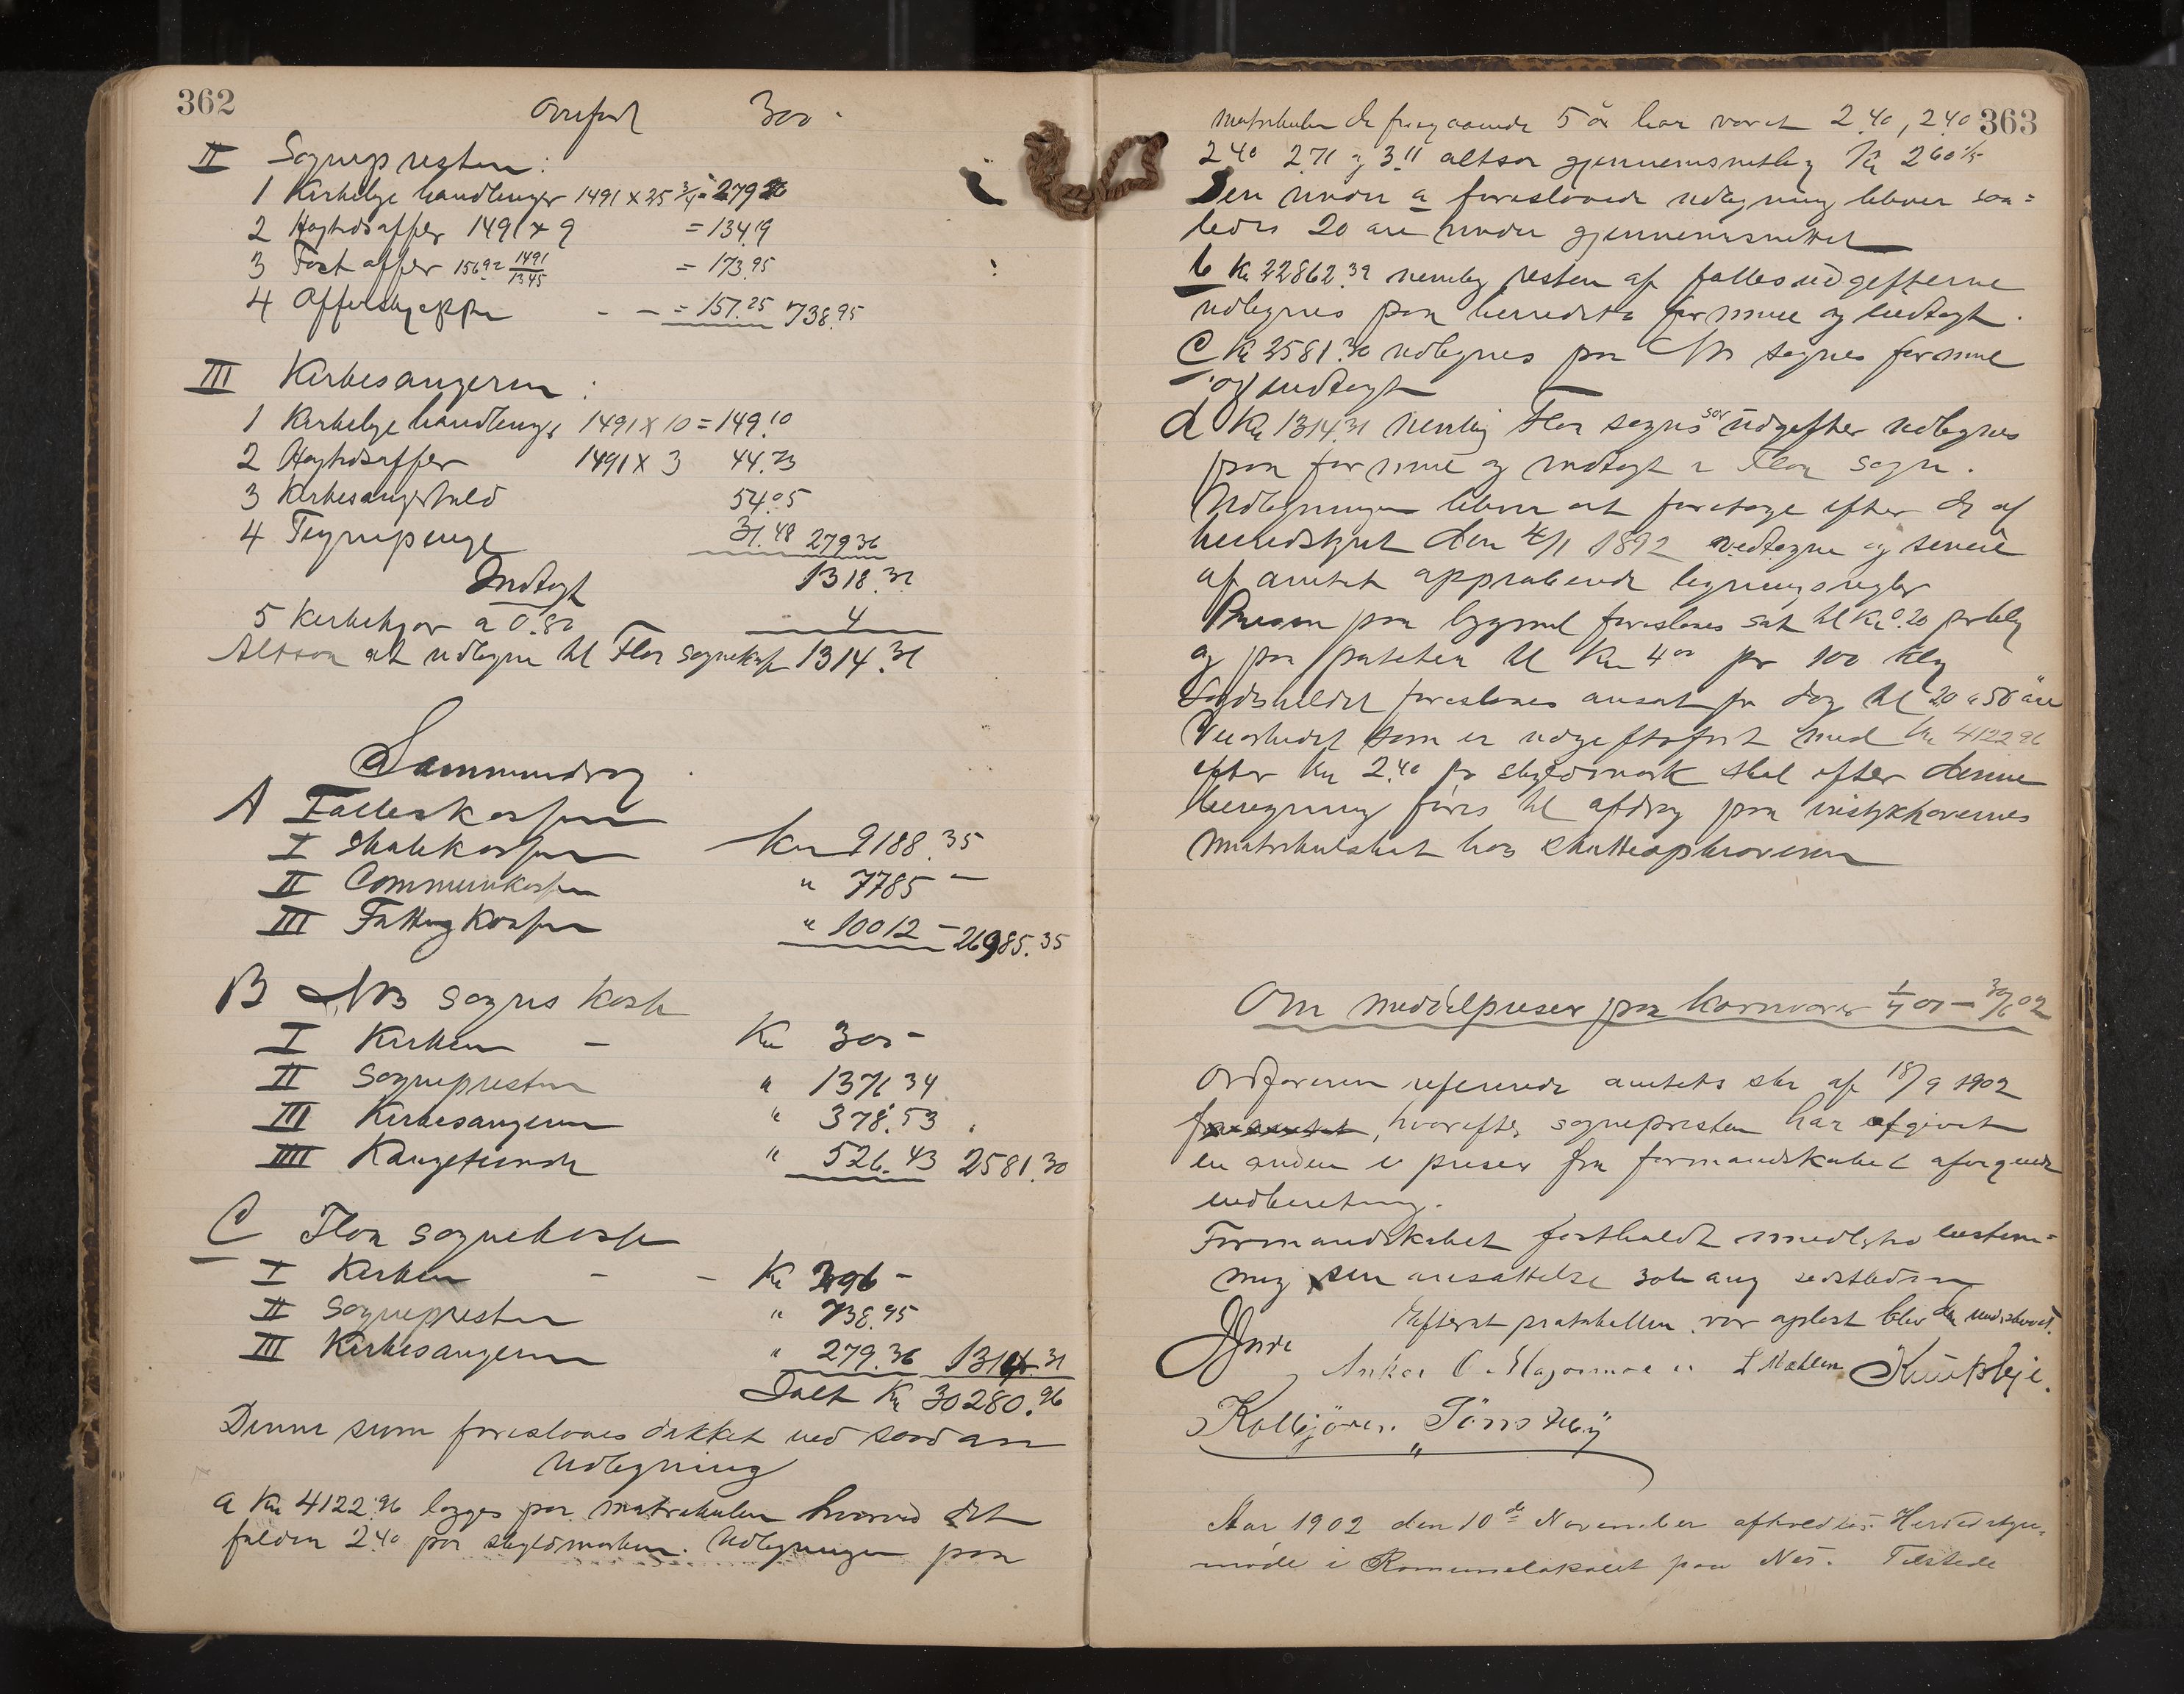 362
Overført 300.
II Sognepresten:
1 Kirkelige handlinger 1491 x 25 3/4 = 279 26
2 Høitidsoffer 1491 x 9 = 134.19
3 Fast offer 156.92 1491/1345 = 173.95
4 Offerskjæppe - - = 151.25 738.95
III Kirkesangeren:
1 Kirkelige handlinger 1491 x 10 = 149.10
2 Høitidsoffer 1491 x 3 44.73
3 Kirkesangertold 54.05
4 Tegnepenge 31.48 279 36
Indtægt 1318.31
5 Kirkekjør a 0.80 4
Altsaa at udligne til Flor sognekasse 1314.31
Sammendrag
A Fælleskassen
I Skolekassen Kr 9188.35
II Communekassen " 7785 -
III Fattigkassen " 10012 - 26985.35
B Næs sogns kasse
I Kirken - Kr 300 -
II Sognepresten " 1376 34
III Kirkesangeren " 378.53
IIII Rangetiende " 526.43 2581.30
C Flor sognekasse
I Kirken - - Kr 296 -
II Sognepresten " 738.95
III Kirkesangeren " 279.36 1314.31
Ialt Kr 30280.96
Denne sum foreslaaes dækket ved saadan
Udligning
a Kr 4122.96 lægges paa matrikulen hvorved det
falder 2.40 paa skyldmarken. Udligningen paa
363
matrikulen de foregaaende 5 år har været 2.40, 2.40
2.40 2.71 og 3.11 altsaa gjennemsnitlig Kr 2 60 2/5
Den under a foreslaaede udligning bliver saa=
ledes 20 øre under gjennemsnittet
b Kr 22862.39 nemlig resten af fællesudgifterne
udlignes paa herredets formue og indtægt.
C Kr 2581.30 udlignes paa Næs sognes formue
og indtægt
d Kr 1314.31 nemlig Flor sogns sær udgifter udlignes
paa formue og indtægt i Flor sogn.
Udligningen bliver at foretage efter de af
herredstyret den 4/1 1892 vedtagne og senere
af amtet approberende ligningsregler
Prisen paa bygmel foreslaaes sat til Kr 0.20 pr kilg
og paa poteter til Kr 4 00 pr 100 Klg
Lægdsholdet foreslaaes ansat pr dag til 20 a 50 öre
Veiarbeidet som er udgiftsført med Kr 4122 96
efter Kr 2.40 pr skyldmark skal efter denne
beregning föres til afdrag paa veistykkhavernes
matrikulskat hos skatteopkræveren
Om middelpriser paa kornvarer 1/7 01 - 30/6 02
Ordføreren refererede amtets skr af 18/9 1902
, hvorefter sognepresten har afgivet
en anden i priser fra formandskabet afvigende
indberetning.
Formandskabet fastholdt imidlertid bestem=
mig sin ansættelse
Efterat protokollen var oplest blev den underskrevet.
Anker O. L Mæhlum Knut Sleje.
Kolbjörn
Aar 1902 den 10de November afholdtes Herredstyre-
møde i Komunelokalet paa Nes. Tilstede